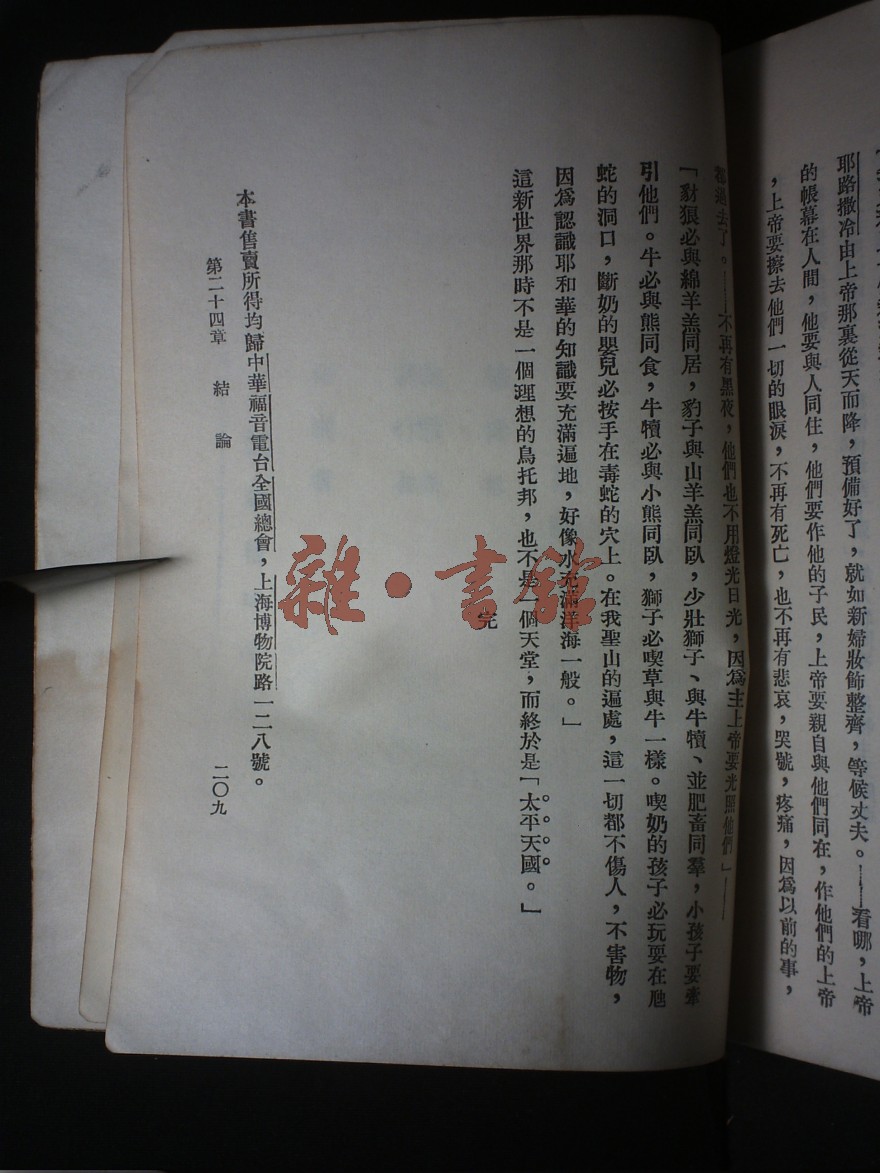 耶路撒冷由上帝那裏從天而降，預備好了，就如新婦妝飾整齊，等候丈夫。——看哪，上帝
的帳幕在人間，他要與人同住，他們要作他的子民，上帝要親自與他們同在，作他們的上帝
，上帝要擦去他們一切的眼淚，不再有死亡，也不再有悲哀，哭號，疼痛，因爲以前的事，
都過去了。——不再有黑夜，他們也不用燈光日光，因爲主上帝要光照他們」——
「豺狼必與綿羊羔同居，豹子與山羊羔同臥，少壯獅子、與牛犢、並肥畜同羣，小孩子要牽
引他們。牛必與熊同食，牛犢必與小熊同臥，獅子必喫草與牛一樣。喫奶的孩子必玩耍在虺
蛇的洞口，斷奶的嬰兒必按手在毒蛇的穴上。在我聖山的遍處，這一切都不傷人，不害物，
因爲認識耶和華的知識要充滿遍地，好像水充滿洋海一般。」
這新世界那時不是一個理想的烏托邦，也不是一個天堂，而終於是「太平天國。」
完
本書售賣所得均歸中華福音電台全國總會，上海博物院路一二八號。
第二十四章　結論
二〇九
雜·書館